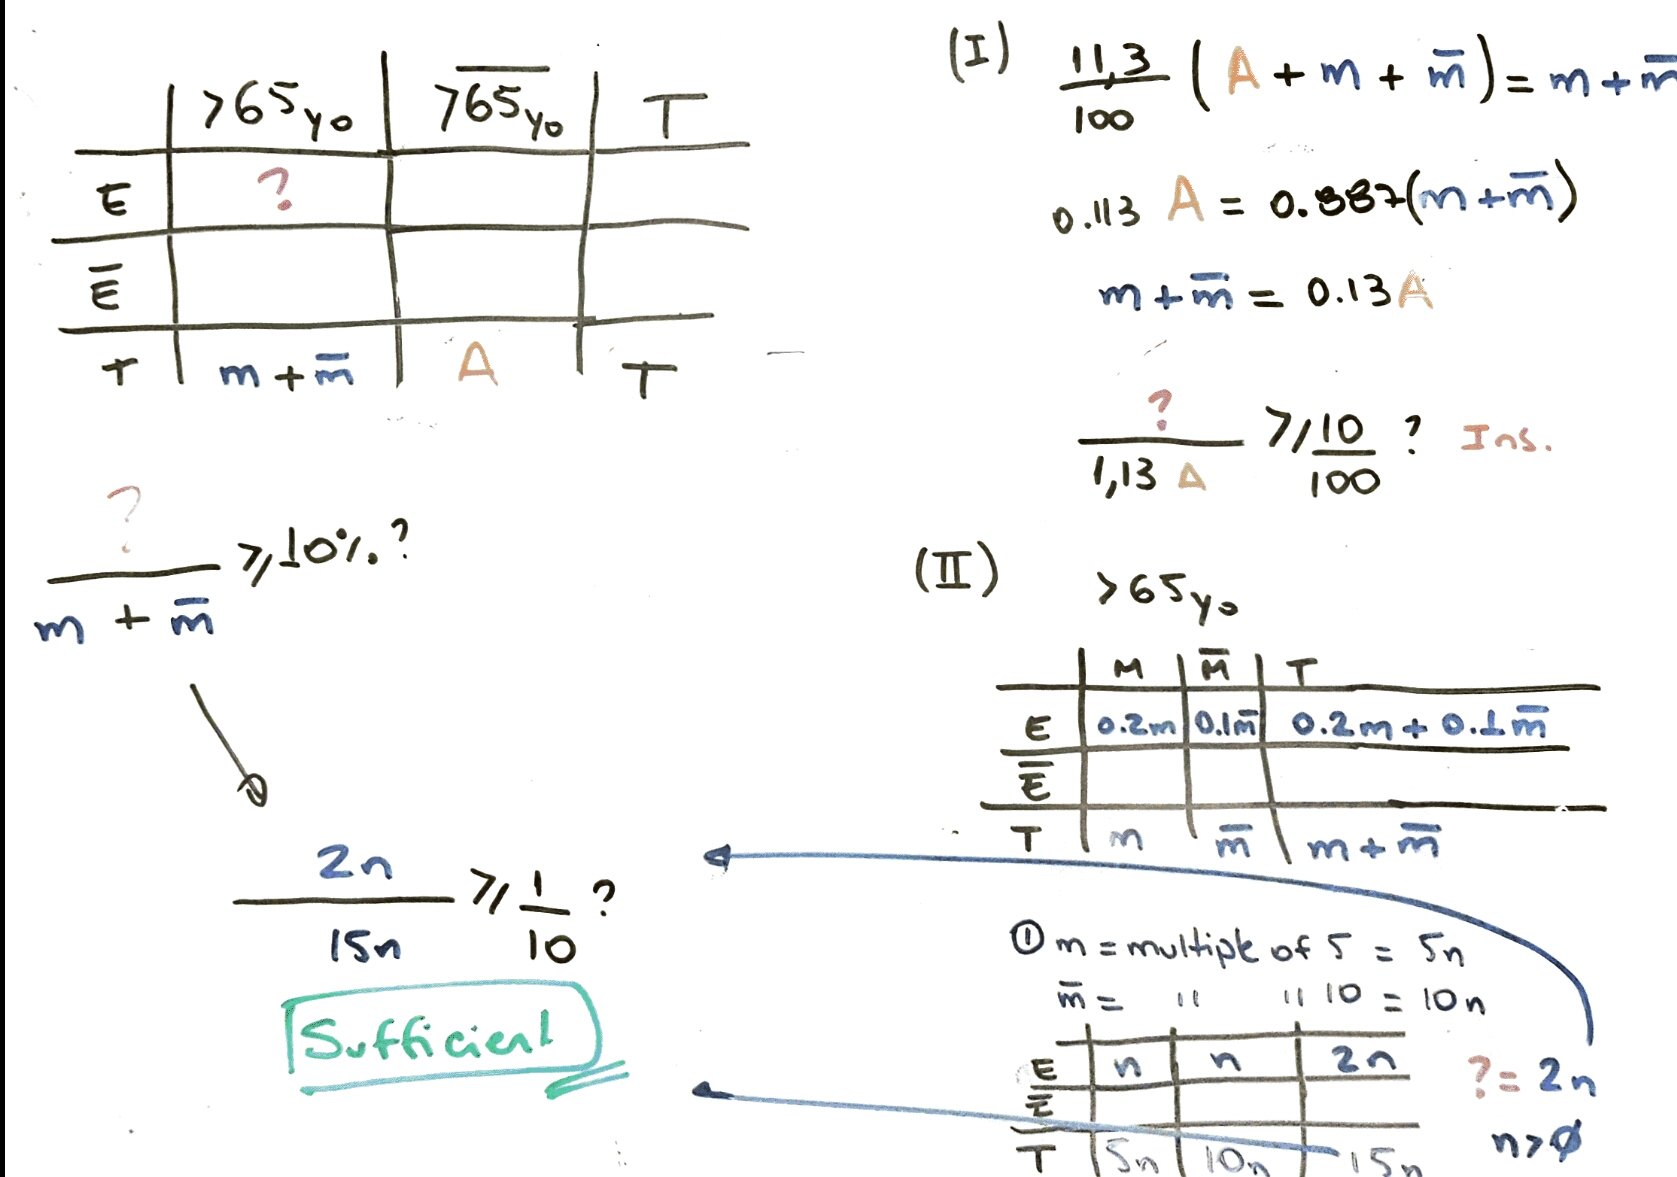 >65yo | >6̅5̅yo | T
E | ?
E̅
T | m + m̅ | A | T
? / (m + m̅) ⩾ 10%?
2n / 15n ⩾ 1/10 ?
Sufficient
(I) 11,3/100 (A + m + m̅) = m + m̅
0.113 A = 0.887(m + m̅)
m + m̅ = 0.13A
? / 1,13 A ⩾ 10/100 ? Ins.
(II) >65yo
M | M̅ | T
E | 0.2m | 0.1m̅ | 0.2m + 0.1m̅
E̅
T | m | m̅ | m + m̅
① m = multiple of 5 = 5n
m̅ = " " 10 = 10n
E | n | n | 2n
E̅
T | 5n | 10n | 15n
? = 2n
n>0